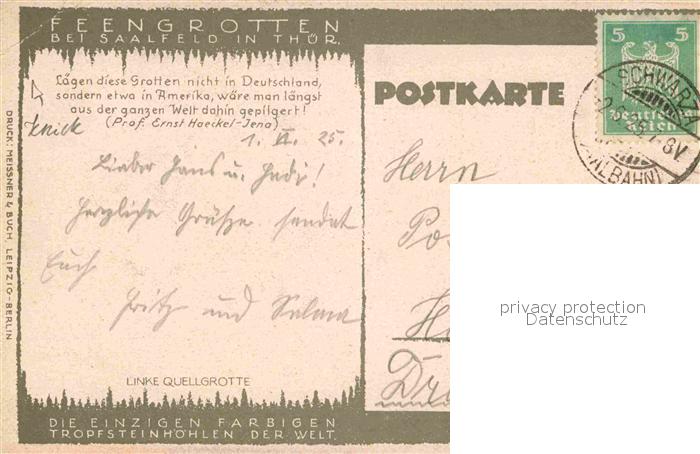 FEENGROTTEN
BEI SAALFELD IN THÜR.
Lägen diese Grotten nicht in Deutschland,
sondern etwa in Amerika, wäre man längst
aus der ganzen Welt dahin gepilgert!
(Prof. Ernst Haeckel-Jena)
Knick
1. VI. 25.
Lieber Hans u.
Herzliche Grüße sendet
Euch
Fritz und Selma
LINKE QUELLGROTTE
DIE EINZIGEN FARBIGEN
TROPFSTEINHÖHLEN DER WELT.
DRUCK: MEISSNER & BUCH, LEIPZIG-BERLIN
POSTKARTE
5 5
Deutsches
Reich
SCHWARZA
8V.
ALBAHN)
Herrn
privacy protection
Datenschutz